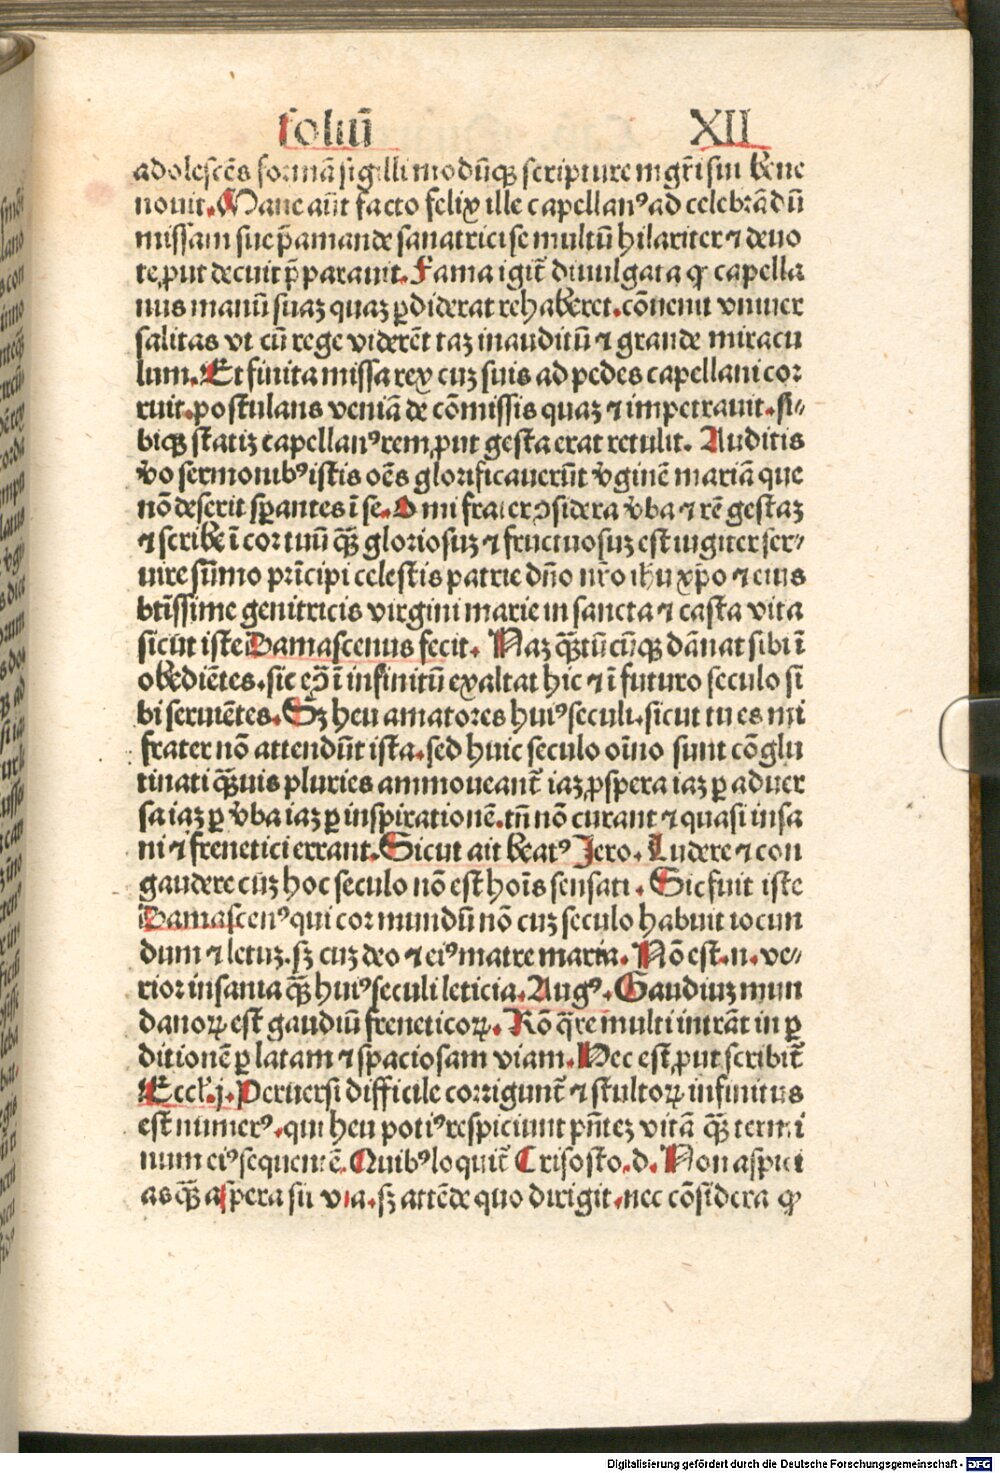 foliū XII
adolescēs formā sigilli modūqꝫ scripture mgr̄i sui bene
nouit. Mane aūt facto felix ille capellanꝰ ad celebrādū
missam sue p̄amande sanatrici se multū hilariter ⁊ deuo
te ꝓut decuit p̄parauit. Fama igit᷑ diuulgata ꝙ capella
nus manū suaꝫ quaꝫ ꝑdiderat rehaberet. cōuenit vniuer
salitas vt cū rege viderēt taꝫ inauditū ⁊ grande miracu
lum. Et finita missa rex cuꝫ suis ad pedes capellani cor
ruit. postulans veniā de cōmissis quaꝫ ⁊ impetrauit. si⸗
biqꝫ statiꝫ capellanꝰ rem ꝓut gesta erat retulit. Auditis
v̄o sermonibꝰ istis oēs glorificauerūt v̄ginē mariā que
nō deserit sꝑantes ī se. O mi frater ↄsidera v̄ba ⁊ rē gestaꝫ
⁊ scribe ī cor tuū qꝫ̄ gloriosuꝫ ⁊ fructuosuꝫ est iugiter ser⸗
uire sūmo prīcipi celestis patrie dn̄o nr̄o ihu xp̄o ⁊ eius
btīssime genitricis virgini marie in sancta ⁊ casta vita
sicut iste Damascenus fecit. Naꝫ qꝫ̄tūcūqꝫ dānat sibi ī
obediētes. sic eꝯ̄ ī infinitū exaltat hic ⁊ ī futuro seculo si
bi seruiētes. Sꝫ heu amatores huiꝰ seculi. sicut tu es mi
frater nō attendūt ista. sed huic seculo oīno sunt cōglu
tinati qꝫ̄uis pluries ammoueant᷑ iaꝫ ꝓspera iaꝫ ꝑ aduer
sa iaꝫ ꝑ v̄ba iaꝫ ꝑ inspirationē. tn̄ nō curant ⁊ quasi insa
ni ⁊ frenetici errant. Sicut ait beatꝰ Jero. Ludere ⁊ con
gaudere cuꝫ hoc seculo nō est hoīs sensati. Sic fuit iste
Damascenꝰ qui cor mundū nō cuꝫ seculo habuit iocun
dum ⁊ letuꝫ. sꝫ cuꝫ deo ⁊ eiꝰ matre maria. Nō est .n. ve⸗
rior insania qꝫ̄ huiꝰ seculi leticia. Augꝰ. Gaudiuꝫ mun
danoꝝ est gaudiū freneticoꝝ. Rō q̄re multi intrāt in ꝑ
ditionē ꝑ latam ⁊ spaciosam viam. Hec est ꝓut scribit᷑
Eccl̄.j. Peruersi difficile corrigunt᷑ ⁊ stultoꝝ infinitus
est numerꝰ. qui heu potiꝰ respiciunt pn̄teꝫ vitā qꝫ̄ termi
num eiꝰ sequentē. Quibꝰ loquit᷑ Crisosto.d. Non aspici
as qꝫ̄ aspera sit via. sꝫ attēde quo dirigit. nec cōsidera ꝙ
Digitalisierung gefördert durch die Deutsche Forschungsgemeinschaft - DFG